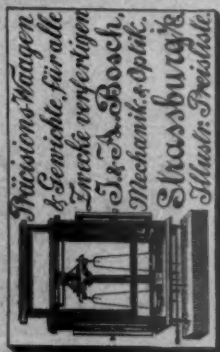 Präcisions-Waagen
& Gewichte, für alle
Zwecke verfertigen
J. & A. Bosch,
Mechanik & Optik.
Strassburg i/E
Illustr. Preisliste.